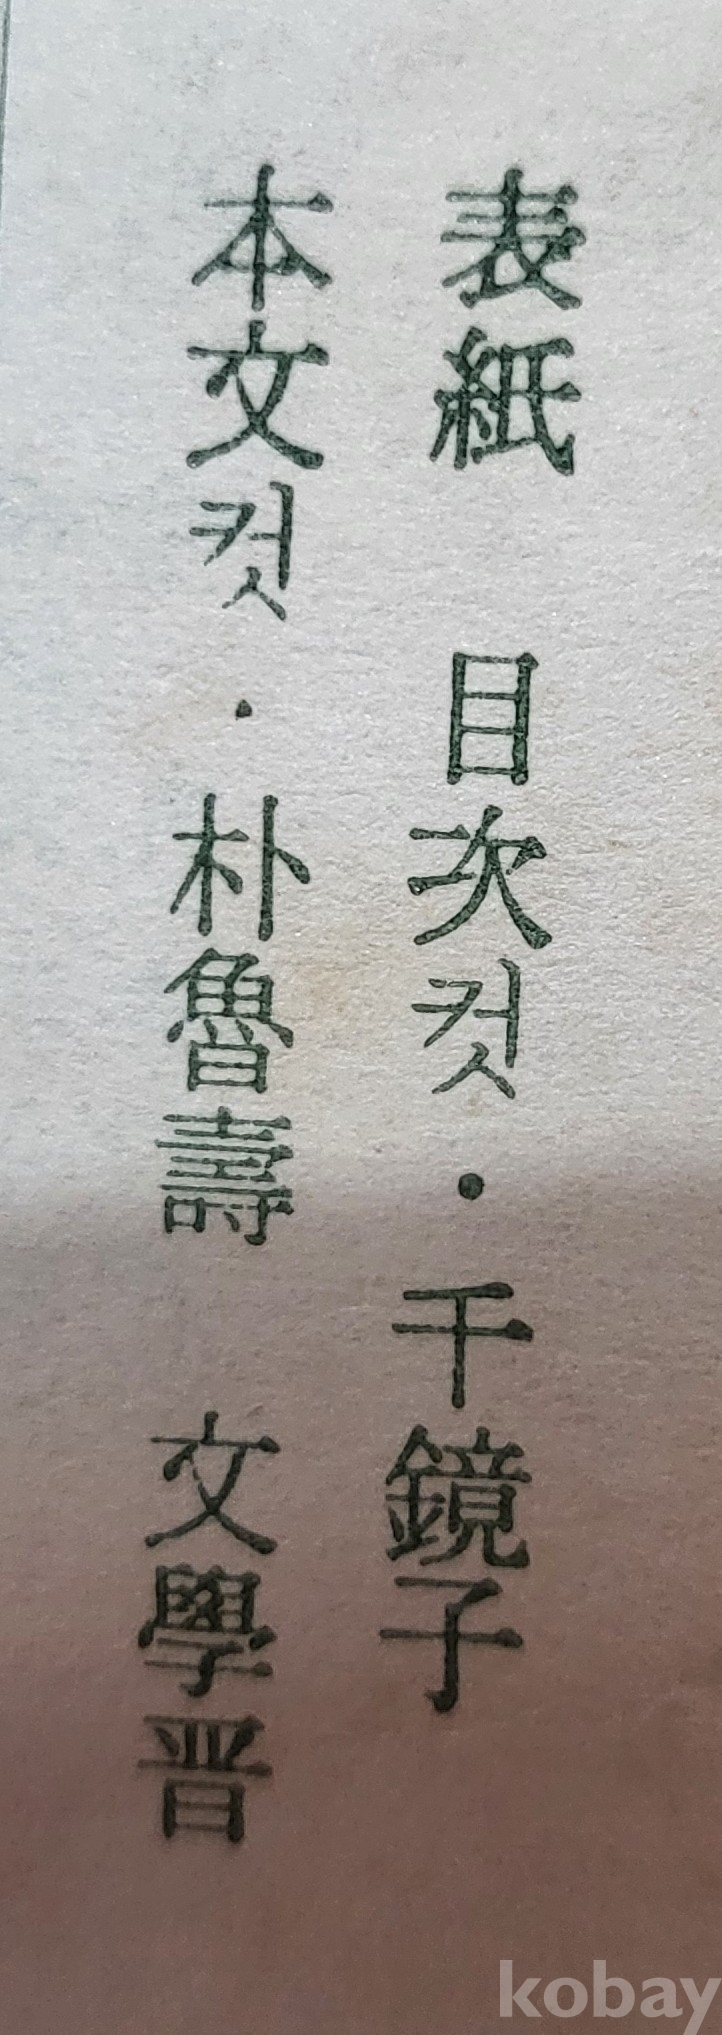 表紙 目次컷·千鏡子
本文컷·朴魯壽 文學晋
kobay